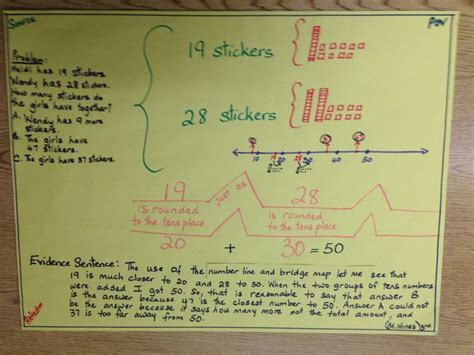 Source
Pov
Problem:
Heidi has 19 stickers.
Wendy has 28 stickers.
How many stickers do
the girls have together?
A. Wendy has 9 more
stickers.
B. The girls have
47 stickers.
C. The girls have 37 stickers.
19 stickers
28 stickers
10 20 30 40 50
19
is rounded
to the tens place
20
just as
28
is rounded
to the tens place
30 = 50
+
Evidence Sentence: The use of the number line and bridge map let me see that
19 is much closer to 20 and 28 to 30. When the two groups of tens numbers
were added I got 50. So, that is reasonable to say that answer B
is the answer because 47 is the closest number to 50. Answer A could not
be the answer because it says how many more not the total amount, and
37 is too far away from 50.